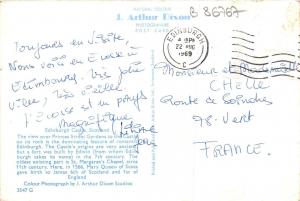 NATURAL COLOUR
J. Arthur Dixon
PHOTOGRAPHIC
POST CARD
B 86767
EDINBURGH
22 AUG
1969
C
Toujours en visite,
Nous voici en Écosse à
Edimbourg. Très jolie
ville, très belle.
L'Écosse est un pays
magnifique
Monsieur et Mademoiselle
CHELLE
Route de
98. Vert
FRANCE.
Edinburgh Castle, Scotland
The view over Princes Street Gardens to the Castle
on its rock is the dominating feature of romantic
Edinburgh. The Castle's origins are very ancient
but a fort was built by Edwin (from whom Edinburgh
takes its name) in the 7th century. The
oldest existing part is St. Margaret's Chapel, circa
11th century. Here, in 1566, Mary Queen of Scots
gave birth to James 6th of Scotland and 1st of
England
Colour Photograph by J. Arthur Dixon Studios
3547 G